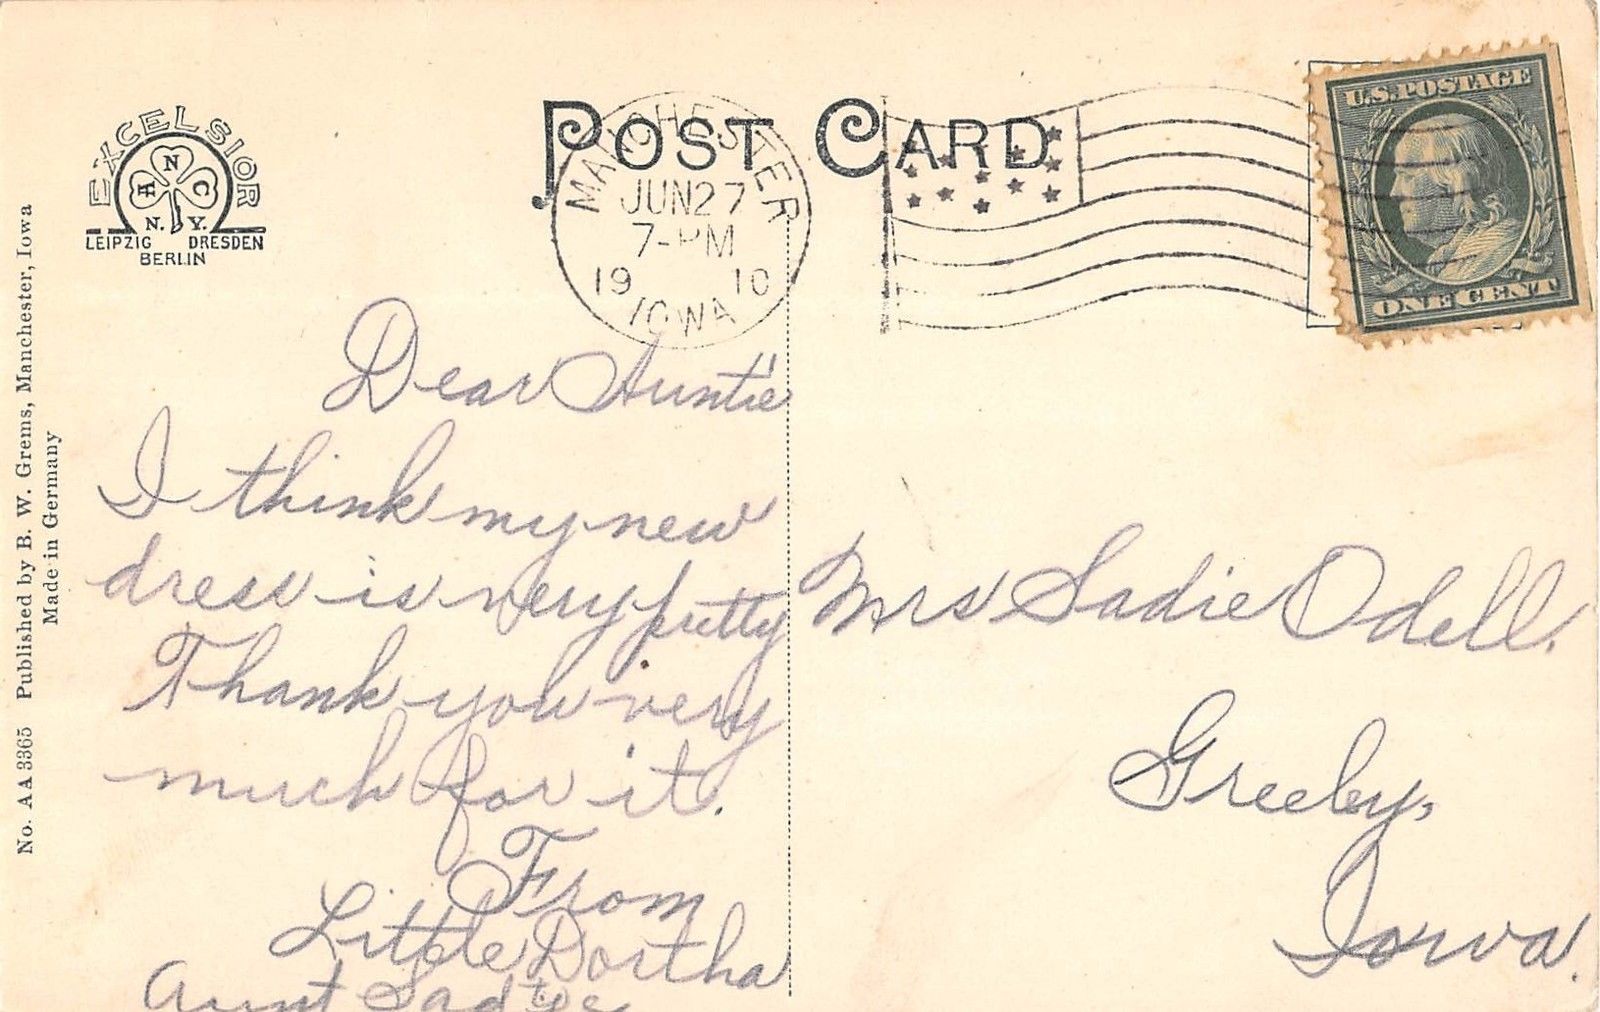 POST CARD
EXCELSIOR
A N C
N. Y.
LEIPZIG DRESDEN
BERLIN
MANCHESTER
JUN 27
7-PM
1910
IOWA
U.S. POSTAGE
ONE CENT
No. AA 3365 Published by B. W. Grems, Manchester, Iowa
Made in Germany
Dear Auntie
I think my new
dress is very pretty
Thank you very
much for it.
From
Little Dortha
Aunt Sadye
Mrs Sadie Odell.
Greeley,
Iowa.